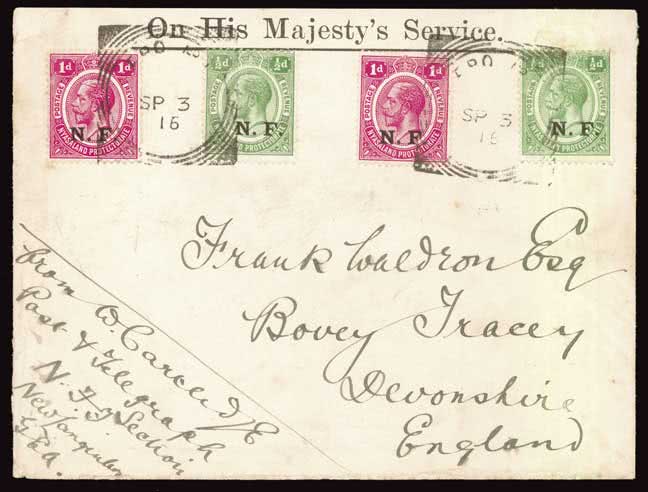 On His Majesty's Service.
1d 1d
POSTAGE REVENUE
N. F.
NYASALAND PROTECTORATE
½d ½d
POSTAGE REVENUE
N. F.
NYASALAND PROTECTORATE
1d 1d
POSTAGE REVENUE
N. F.
NYASALAND PROTECTORATE
½d
POSTAGE REVENUE
N. F.
NYASALAND PROTECTORATE
SP 3
16
SP 3
16
Frank Waldron Esq
Bovey Tracey
Devonshire
England
from W.
Post & Telegraph
N. F. Section